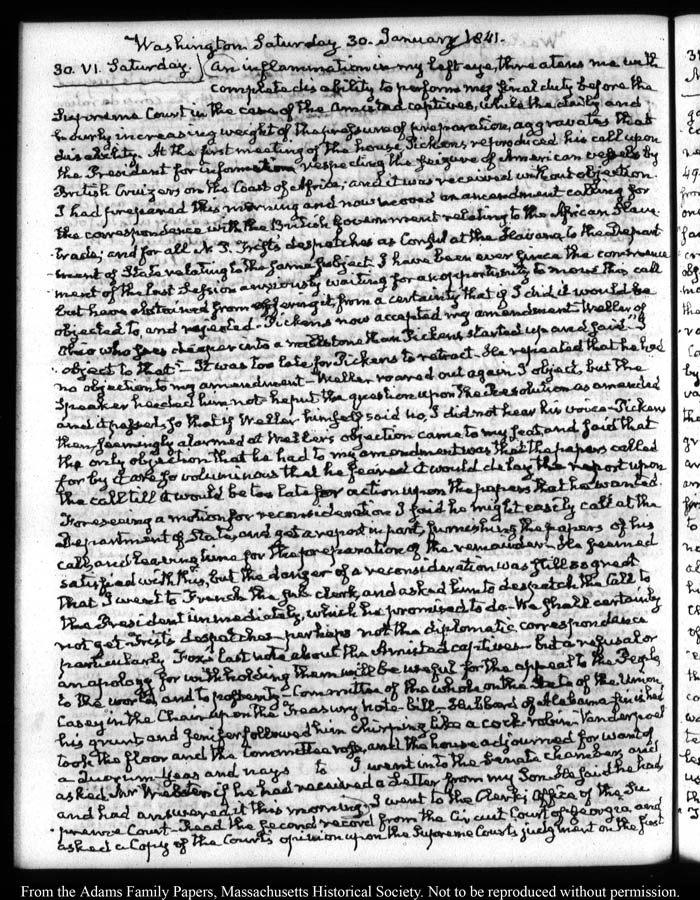 Washington Saturday 30. January 1841.
30. VI. Saturday. An inflammation in my left eye, threatens me with
complete disability to perform my final duty before the
Supreme Court in the case of the Amistad captives, while the daily and
hourly increasing weight of the pressure of preparation, aggravates that
disability. At the first meeting of the house Pickens reproduced his call upon
the President for information respecting the seizure of American vessels by
British Cruizers on the Coast of Africa; and it was received without objection.
I had prepared this morning and now moved an amendment calling for
the correspondence with the British Government relating to the African Slave
trade; and for all N. P. Trist's despatches as Consul at the Havana to the Depart
ment of State relating to the same subject. I have been ever since the commence
ment of the last Session anxiously waiting for an opportunity to move this call
but have abstained from offering it, from a certainty that if I did it would be
objected to, and rejected. Pickens now accepted my amendment. Weller of
Ohio who sees deeper into a millstone than Pickens started up and said I
object to that. It was too late for Pickens to retract. He repeated that he had
no objection to my amendment. Weller roared out again I object, but the
Speaker heeded him not. he put the question upon the Resolution as amended
and it passed, so that if Weller himself said no, I did not hear his voice. Pickens
then seemingly alarmed at Weller's objection came to my seat, and said that
the only objection that he had to my amendment was that the papers called
for by it are so voluminous that he feared it would delay the report upon
the call till it would be too late for action upon the papers that he wanted.
Foreseeing a motion for reconsideration I said he might easily call at the
Department of State, and get a report in part, furnishing the papers of his
call, and leaving time for the preparation of the remainder. He seemed
satisfied with this, but the danger of a reconsideration was still so great
that I went to French the sub clerk, and asked him to despatch the Call to
the President immediately, which he promised to do. We shall certainly
not get Trist's despatches. perhaps not the diplomatic correspondence
particularly Fox's last note about the Amistad captives. but a refusal or
an apology for withholding them will be useful for the appeal to the People
to the world, and to posterity. Committee of the whole on the State of the Union,
Casey in the Chair, upon the Treasury note bill. Hubbard of Alabama finished
his grunt and Jenifer followed him chirping like a cock-robin. Vanderpoel
took the floor and the Committee rose, and the house adjourned for want of
a Quorum Yeas and nays to I went into the Senate chamber, and
asked Mr Webster if he had received a Letter from my Son. He said he had,
and had answered it this morning. I went to the Clerk's Office of the Su
preme Court. Read the second record from the Circuit Court of Georgia, and
asked a Copy of the Court's opinion upon the Supreme Court's judgment on the first
From the Adams Family Papers, Massachusetts Historical Society. Not to be reproduced without permission.